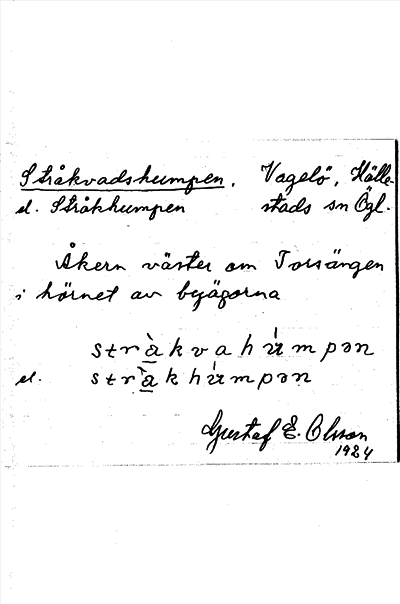 Stråkvadshumpen. Vagelö, Hälle-
el. Stråkhumpen stads sn Ögl.
Åkern väster om Torsängen
i hörnet av byägorna
stràkvahúmpən
el. stràkhúmpən
Gustaf E. Olsson
1924